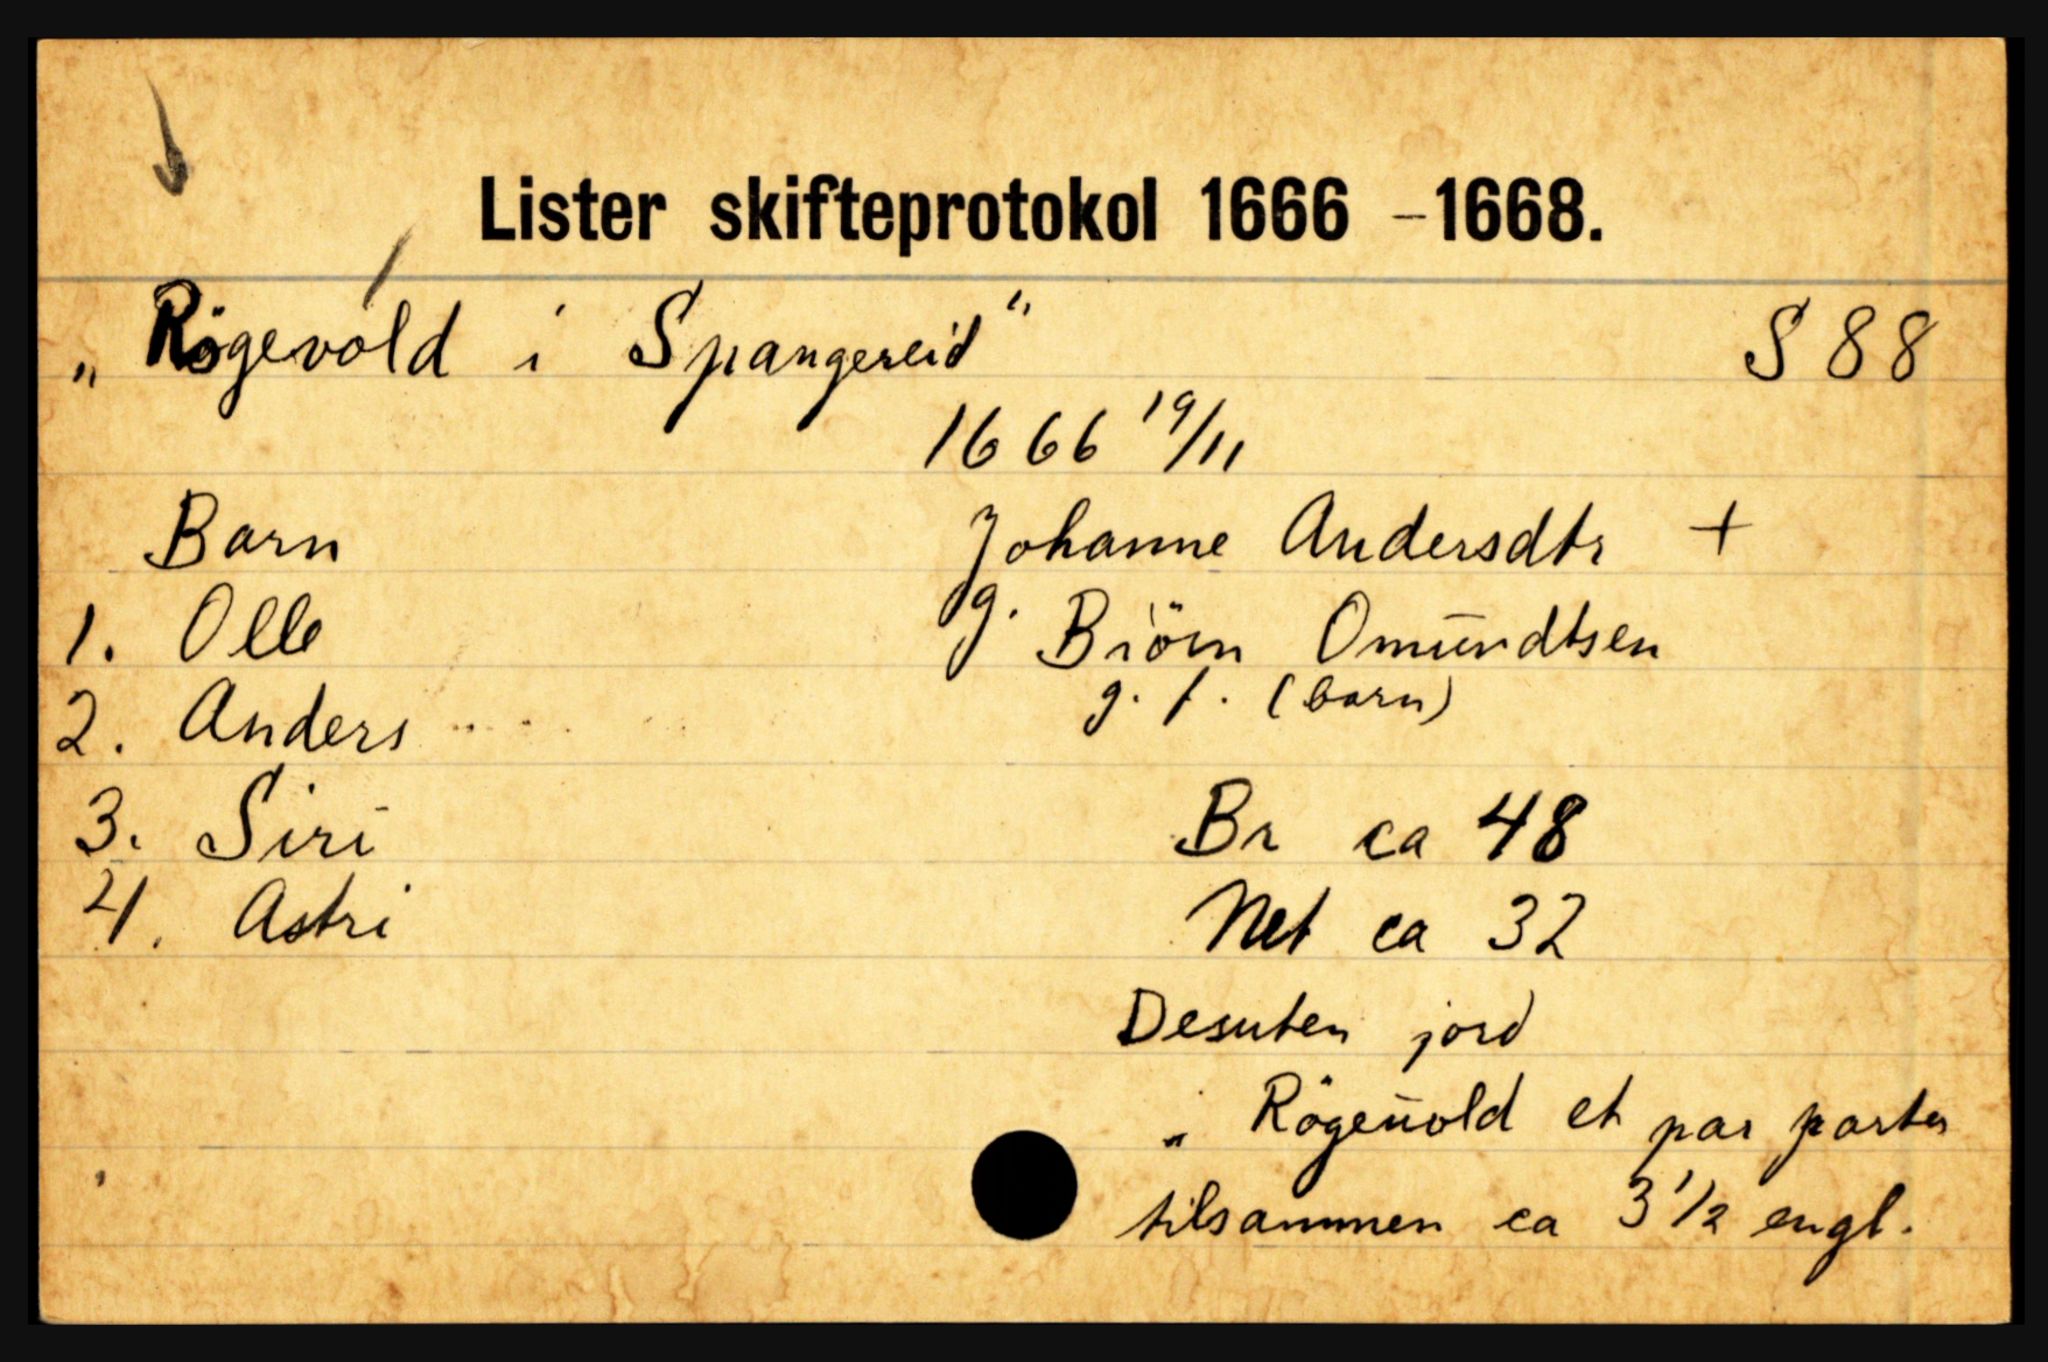 Lister skifteprotokol 1666 – 1668.
„ Rögevold i Spangereid“ S 88
1666 19/11
Barn Johanne Andersdtr +
1. Olle g. Biörn Omundtsen
2. Anders g. f. (barn)
3. Siri Br ca 48
4. Astri Net ca 32
Desuten jord
„ Rögeuold et par parter
tilsammen ca 3 1/2 engl.